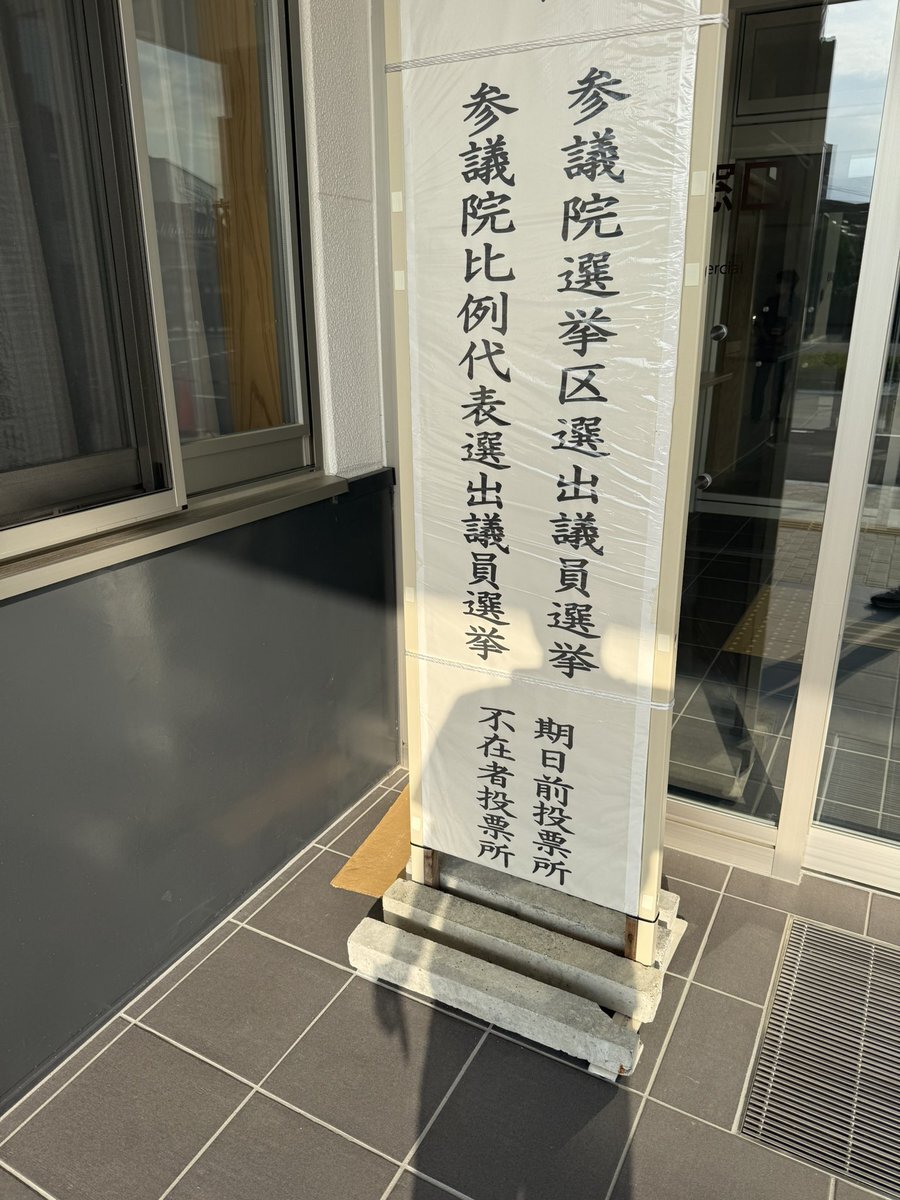 参議院選挙区選出議員選挙
参議院比例代表選出議員選挙
期日前投票所
不在者投票所
ercial